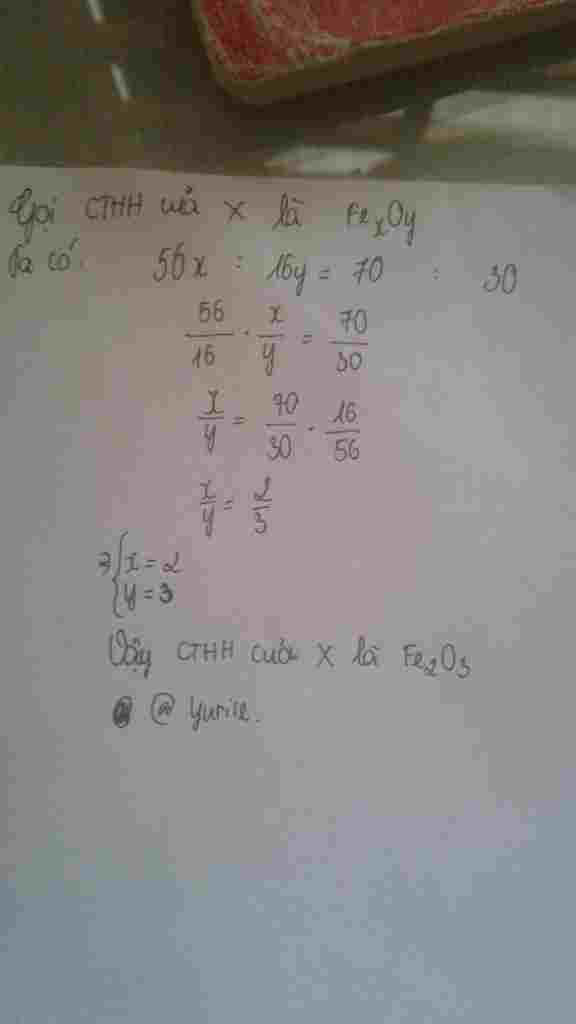 Gọi CTHH của X là FexOy
Ta có: 56x : 16y = 70 : 30
56/16 . x/y = 70/30
x/y = 70/30 . 16/56
x/y = 2/3
=> { x = 2
{ y = 3
Vậy CTHH của X là Fe2O3
@ yurile.